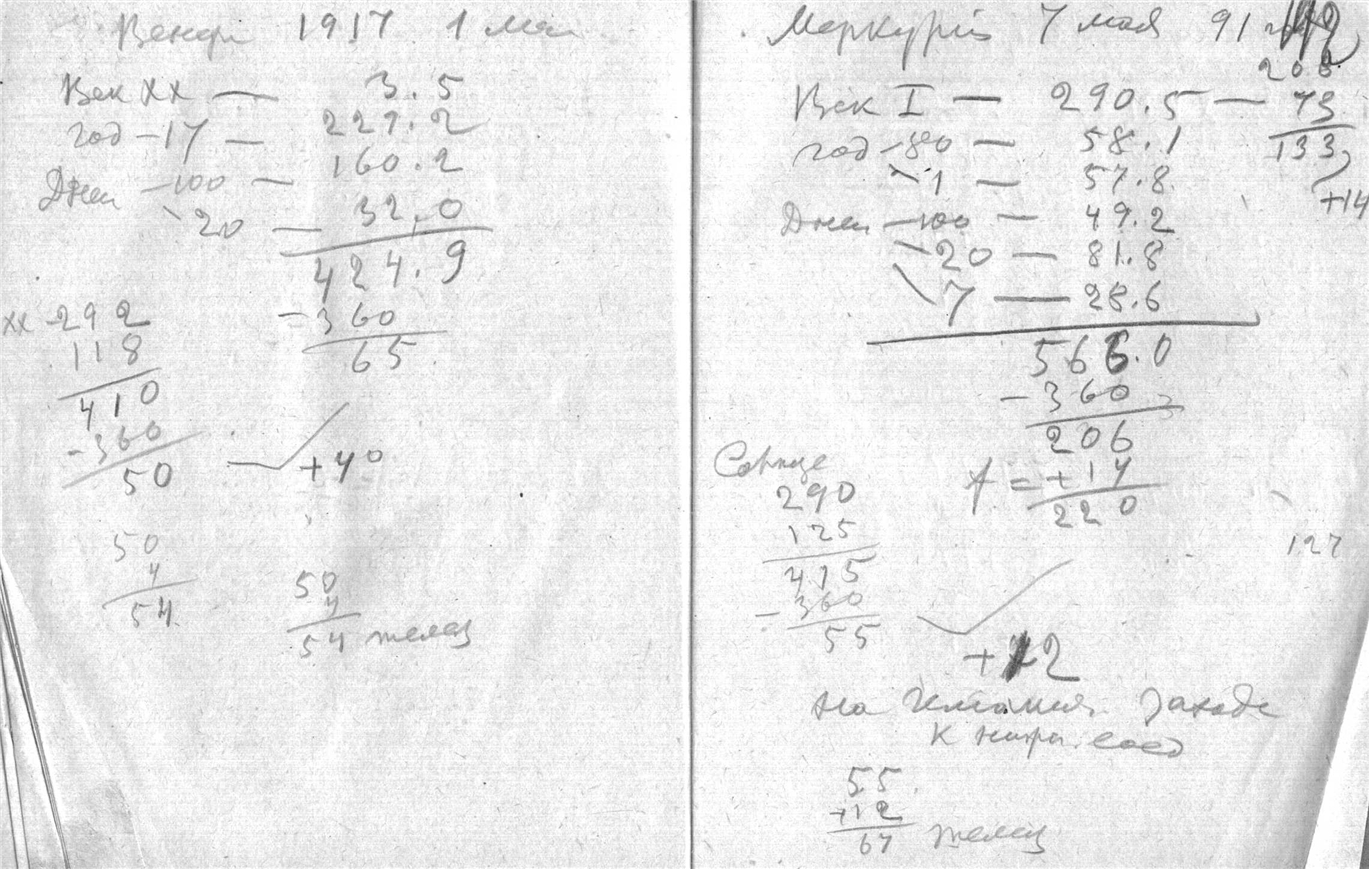 Венера 1917 1 мая
Век XX — 3.5
год -17 — 229.2
Дней -100 — 160.2
-20 — 32.0
424.9
-360
65
XX -292
118
410
-360
50
+4°
50
4
54
50
4
54 телец
Меркурій 7 мая 91
208
Век I — 290.5 — 73
год -80 — 58.1 133
-1 — 57.8 +14
Дней -100 — 49.2
-20 — 81.8
7 — 28.6
566.0
-360
206
+14
220
Солнце
290
125
415
-360
55
127
+12
на захода
к
55
+12
67 телец